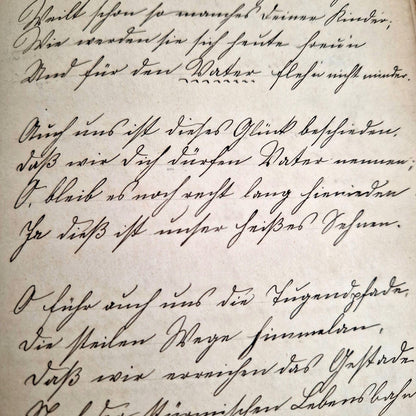 Weilt schon so manches Deiner Kinder;
Wie werden sie sich heute freu'n
Und für den Vater fleh'n nicht minder.
Auch uns ist dieses Glück beschieden,
Daß wir Dich dürfen Vater nennen;
O, bleib es noch recht lang hienieden
Ja dieß ist unser heißes Sehnen.
O führ auch uns die Tugendpfade,
Die steilen Wege himmelan,
Daß wir erreichen das Gestade
der stürmischen Lebensbahn